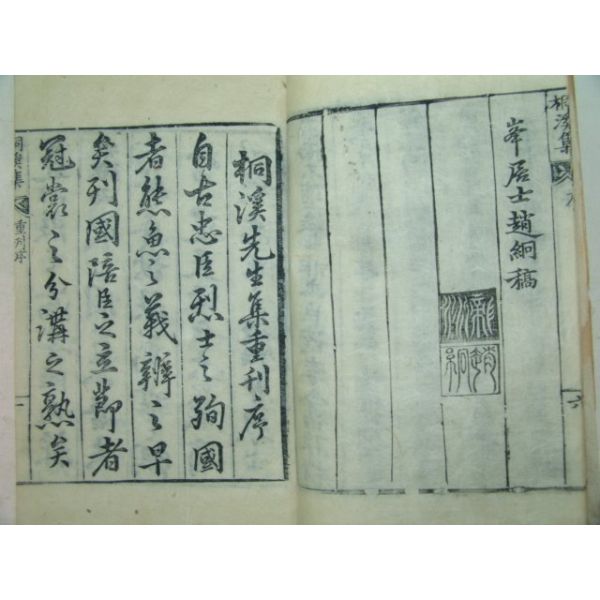 桐溪集
序
六
峯居士趙絅稿
趙絅
桐溪先生集重刊序
自古忠臣烈士之殉國
者熊魚之義辨之早
矣列國陪臣之立節者
冠裳之分講之熟矣
桐溪集
重刊序
一